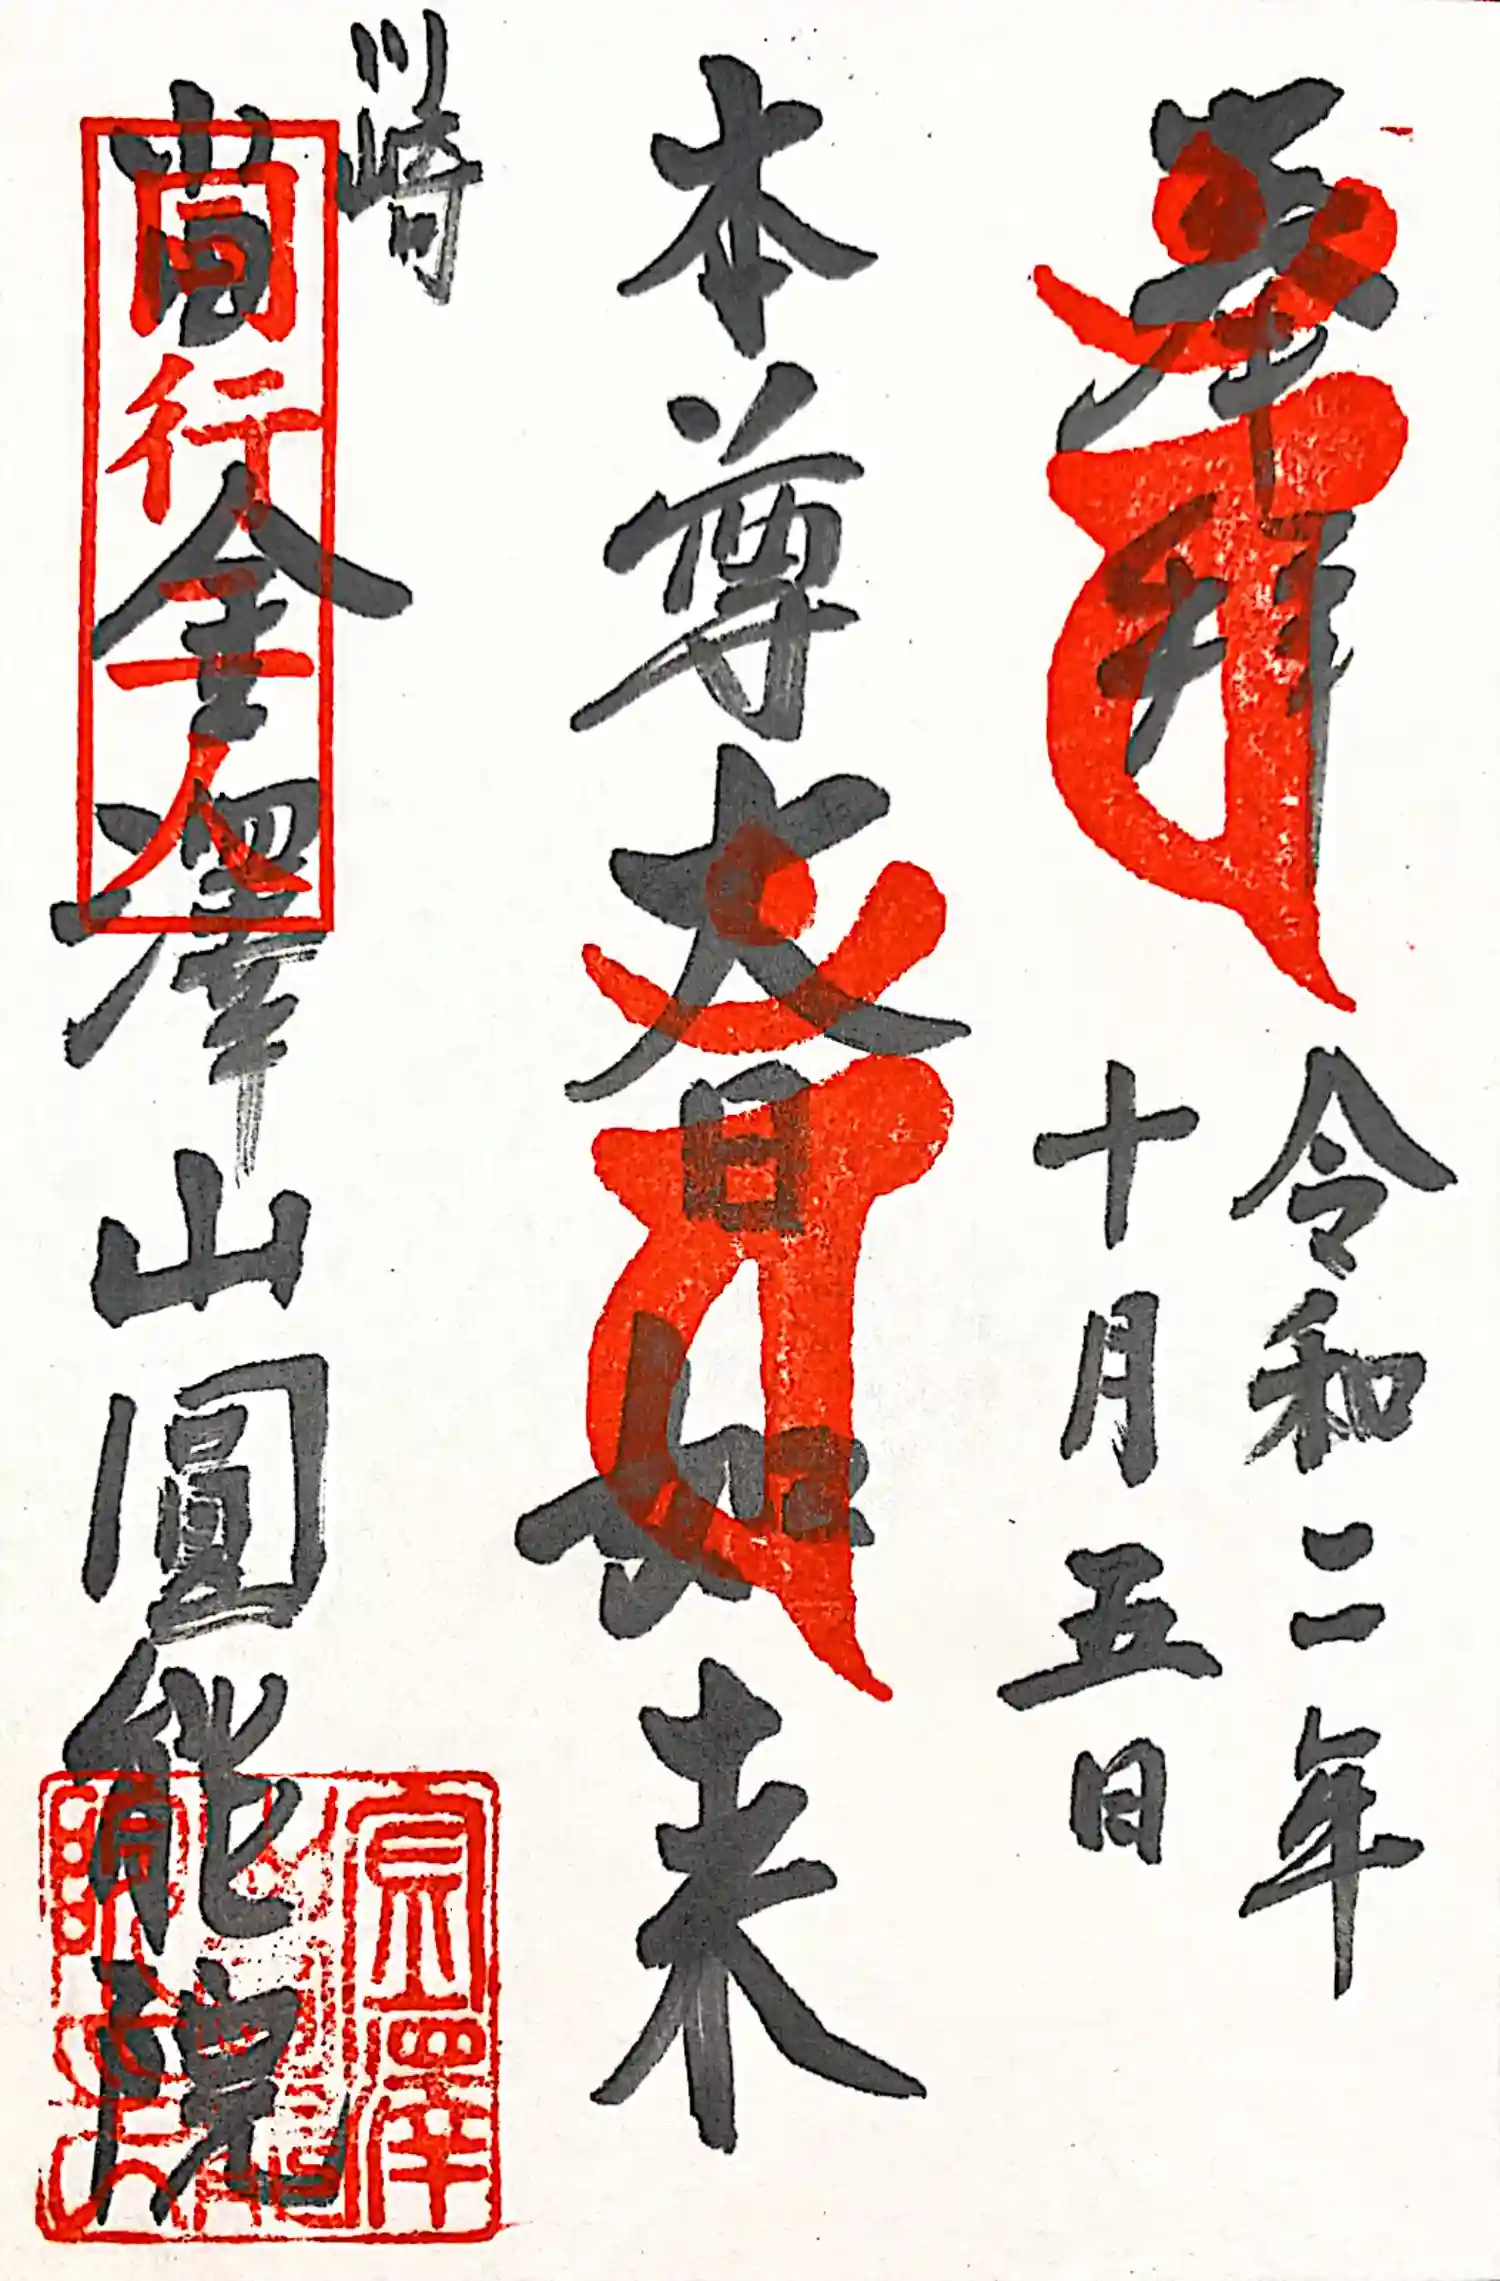 奉拝
令和二年
十月五日
本尊大日如来
川崎
全澤山圓能院
同行二人